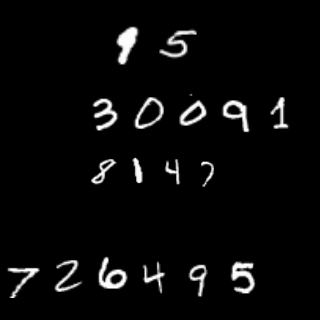 95
30091
8147
726495